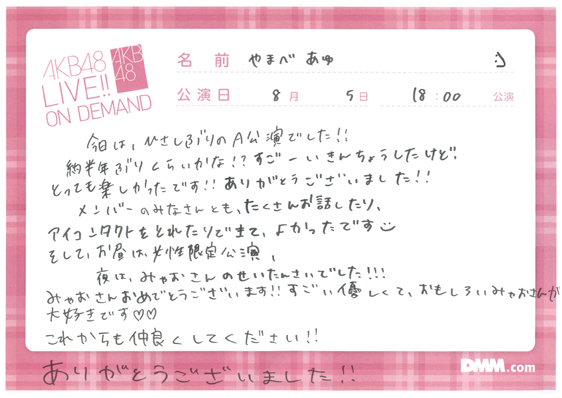 AKB48
LIVE!!
ON DEMAND
AKB
48
名前 やまべ あゆ :)
公演日 8月 5日 18:00 公演
今日は、ひさしぶりのA公演でした!!
約半年ぶりくらいかな!?すごーいきんちょうしたけど、
とっても楽しかったです!!ありがとうございました!!
メンバーのみなさんとも、たくさんお話したり、
アイコンタクトをとれたりできて、よかったです
そして、お昼は、女性限定公演、
夜は、みゃおさんのせいたんさいでした!!!
みゃおさんおめでとうございます!!すごい優しくて、おもしろいみゃおさんが
大好きです♡♡
これからも仲良くしてください!!
ありがとうございました!!
DMM.com